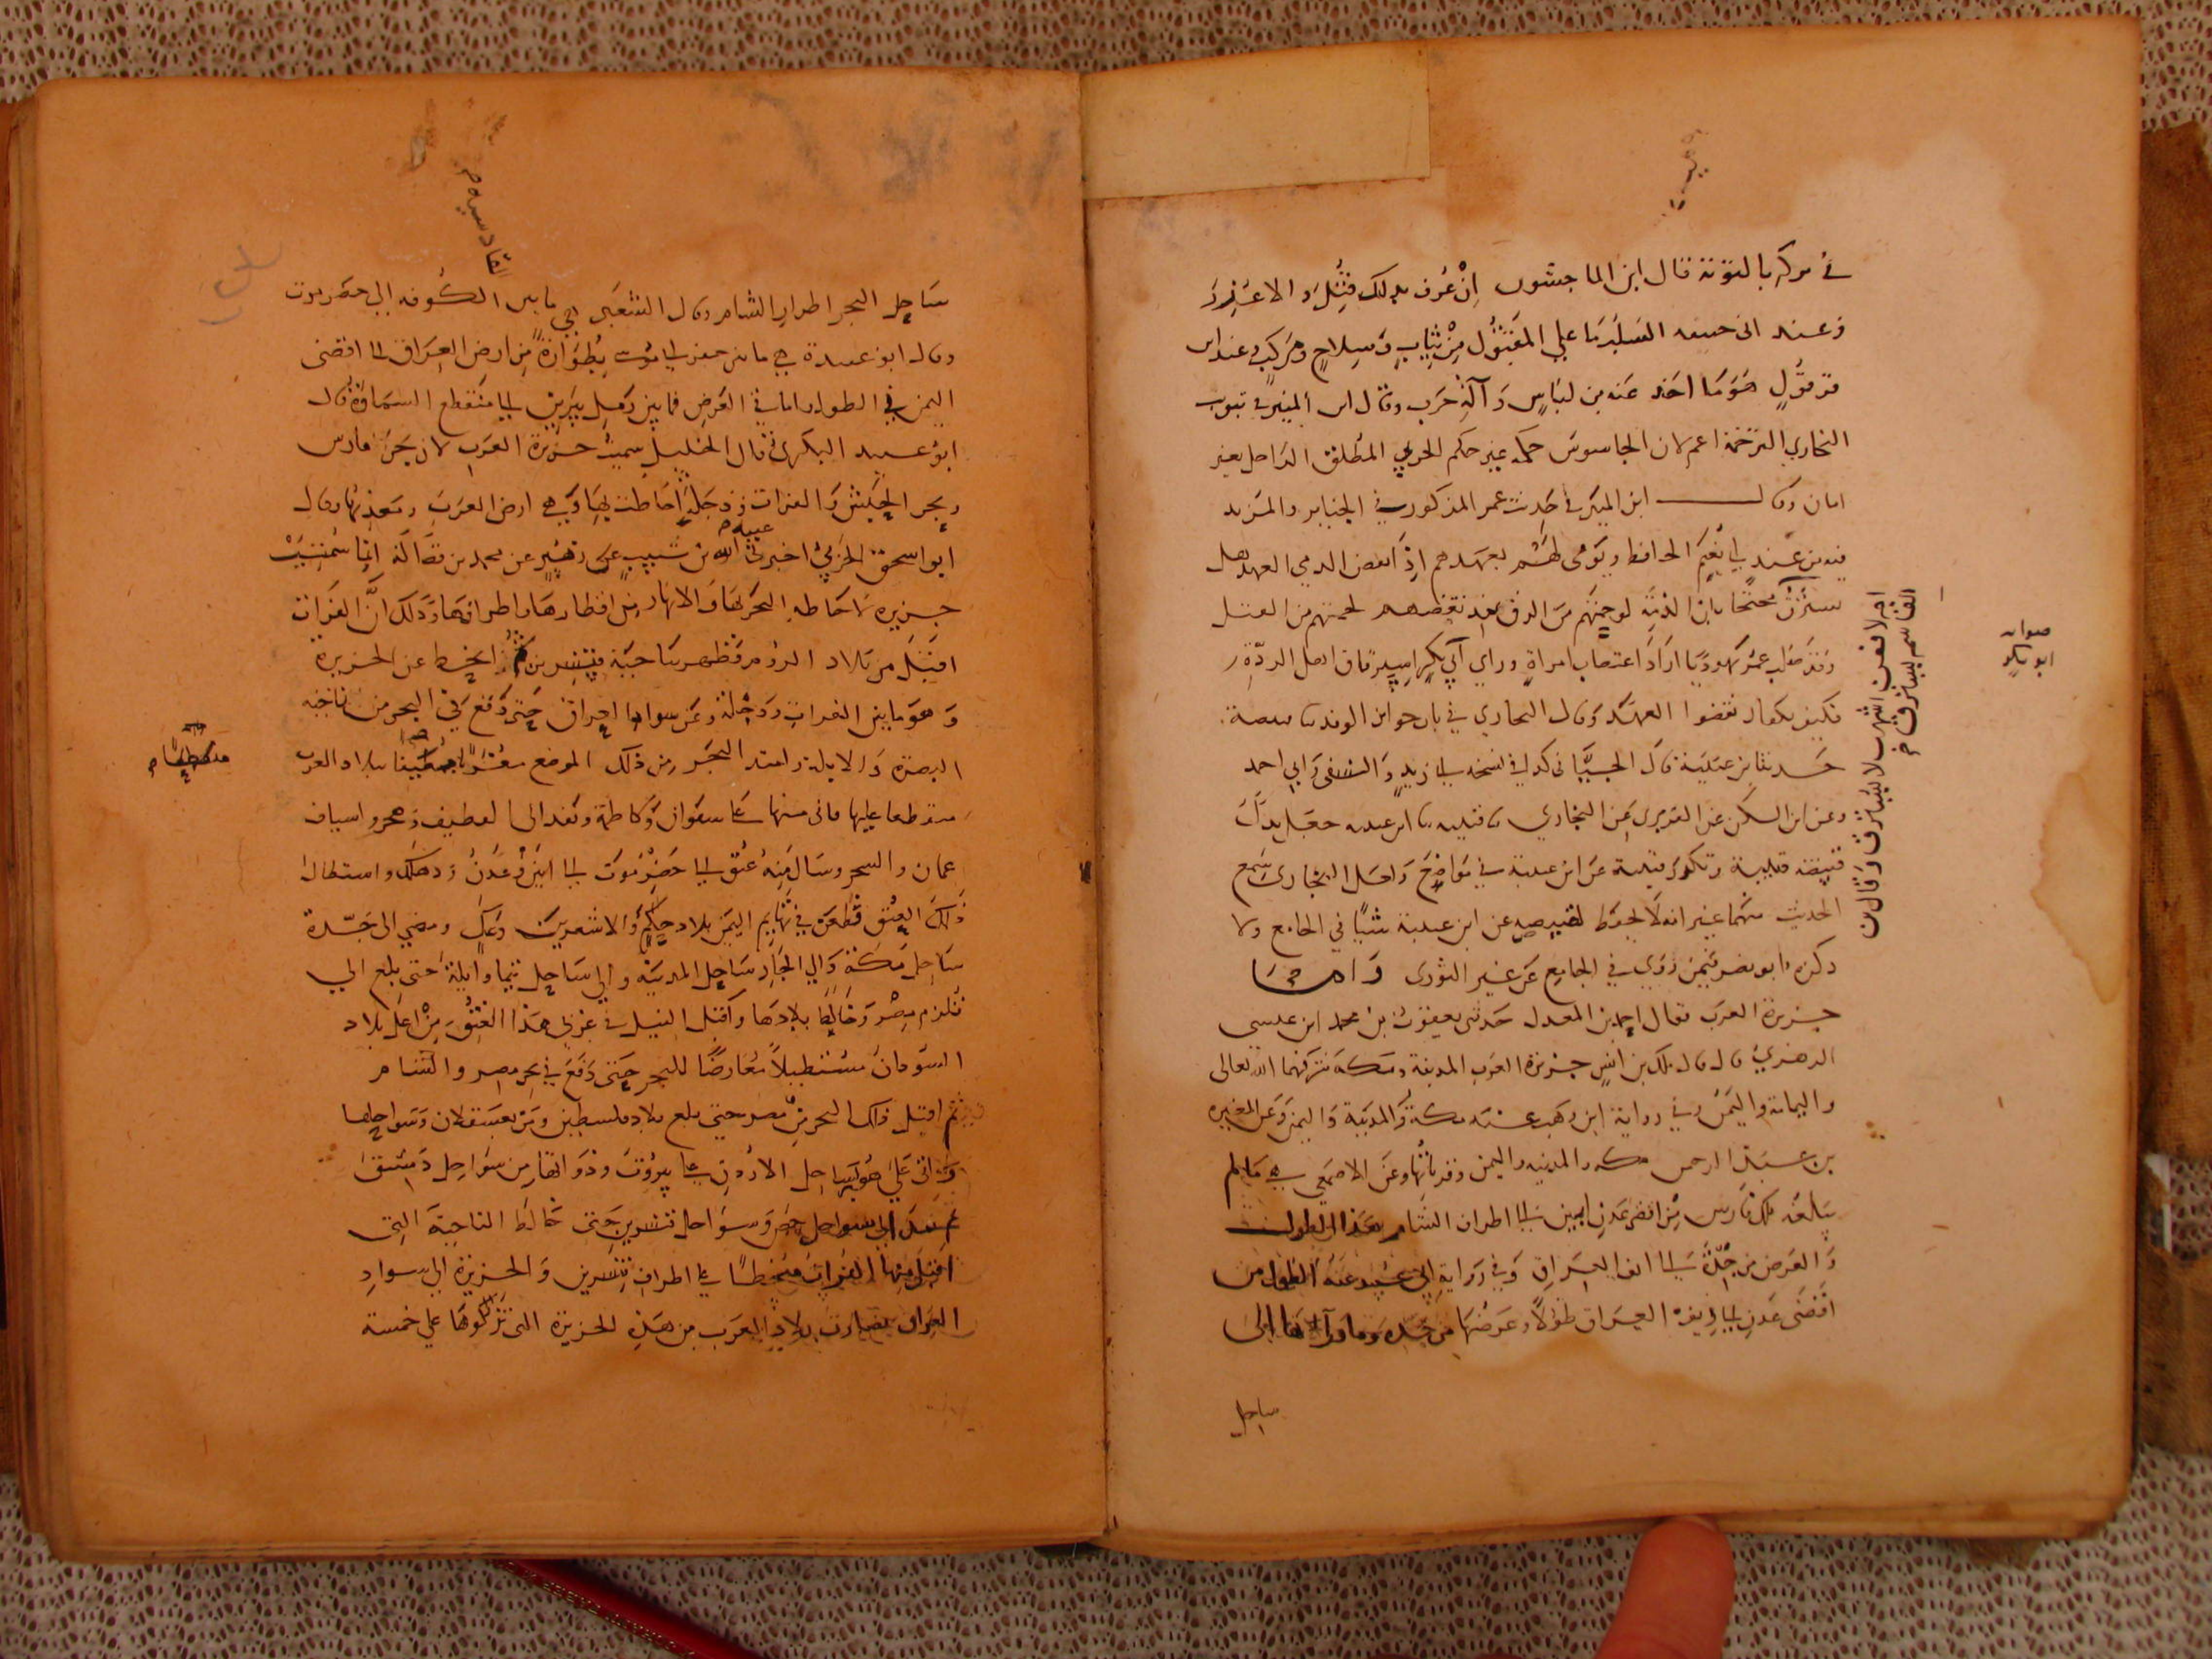 في تركه بالتوبة قال ابن الماجشون إن عرف بذلك قتل والا عزر
وعند ابي حنيفة السلب ما على المقتول من ثياب وسلاح ومركب وعند ابن
قرقول هو ما اخذ عنه من لباس وآلة حرب وقال ابن المنير في تبويب
البخاري الترجمة اعم لان الجاسوس حكمه غير حكم الحربي المطلق الداخل بغير
امان وقال ابن المنير في حديث عمر المذكور في
عند ابي نعيم الحافظ ويوفى لهم بعهدهم اذا نقض الذمي العهد هل
يسترق محتجا بان الذمة لو حمتهم من الرق بعد نقضهم لحمتهم من القتل
وقد صلب عمر يهوديا اراد اغتصاب امراة وراي ابي بكر اسير قاق اهل الردة
فكيف بكفار نقضوا العهد وقال البخاري في باب جوائز الوفد قبيصة
حدثنا ابن عيينة قال الجياني كذا في نسخة ابي زيد والنسفي وابي احمد
وعن ابن السكن عن الفربري عن البخاري ثنا قتيبة ثنا ابن عيينة جعل بدل
قبيصة قتيبة وتكرر قتيبة عن ابن عيينة في مواضع ولعل البخاري سمع
الحديث منهما غير انه لا يحفظ لقبيصة عن ابن عيينة شيئا في الجامع ولا
ذكره ابو نصر فيمن روى في الجامع عن غير الثوري واما
جزيرة العرب فقال احمد بن المعدل حدثني يعقوب بن محمد ابن عيسى
الزهري قال قال ملك بن انس جزيرة العرب المدينة ومكة شرفهما الله تعالى
واليمامة واليمن وفي رواية ابن وهب عنه مكة والمدينة واليمن وعن المغيرة
بن عبد الرحمن مكة والمدينة واليمن وقرياتها وعن الاصمعي هي ما لم
يبلغه ملك فارس من اقصى عدن ابين الى اطراف الشام هذا الطول
والعرض من جدة الى ريف العراق وفي رواية ابي عبيد عنه الطول من
اقصى عدن الى ريف العراق طولا وعرضها من جدة وما والاها الى
ساحل
صوابه
ابو بكر
ساحل البحر الى اطرار الشام وقال الشعبي هي ما بين الكوفة الى حضرموت
وقال ابو عبيدة هي ما بين حفر ابي موسى بطوارة من ارض العراق الى اقصى
اليمن في الطول واما في العرض فما بين رمل يبرين الى منقطع السماوة قال
ابو عبيد البكري قال الخليل سميت جزيرة العرب لان بحر فارس
وبحر الحبش والفرات ودجلة احاطت بها وهي ارض العرب ومعدنها وقال
ابو اسحق الحربي اخبرني عبد الله بن شبيب عن زبير عن محمد بن فضالة انما سميت
جزيرة لاحاطة البحر بها والانهار من اقطارها واطرافها وذلك ان الفرات
اقبل من بلاد الروم فظهر بناحية قنسرين ثم انحط عن الجزيرة
وهو ما بين الفرات ودجلة وعن سواد العراق حتى وقع في البحر من ناحية
البصرة والابلة وامتد البحر من ذلك الموضع مغربا مطيفا ببلاد العرب
منعطفا عليها فاتى منها على سفوان وكاظمة ونفذ الى القطيف وهجر واسياف
عمان والشحر وسال منه عنق الى حضرموت الى ابين وعدن ودهلك واستطال
ذلك العنق فطعن في تهايم اليمن بلاد حكم والاشعريين وعك ومضى الى جدة
ساحل مكة والى الجار ساحل المدينة والى ساحل تيما وايلة حتى بلغ الى
قلزم مصر وخالط بلادها واقبل النيل في غربي هذا العنق من اعلى بلاد
السودان مستطيلا معارضا للبحر حتى دفع في بحر مصر والشام
ثم اقبل ذلك البحر من مصر حتى بلغ بلاد فلسطين ومر بعسقلان وسواحلها
واتى على صور ساحل الاردن على بيروت وذواتها من سواحل دمشق
ثم نفذ الى سواحل حمص وسواحل قنسرين حتى خالط الناحية التي
اقبل منها الفرات منحطا على اطراف قنسرين والجزيرة الى سواد
العراق فصارت بلاد العرب من هذه الجزيرة التي نزلوها على خمسة